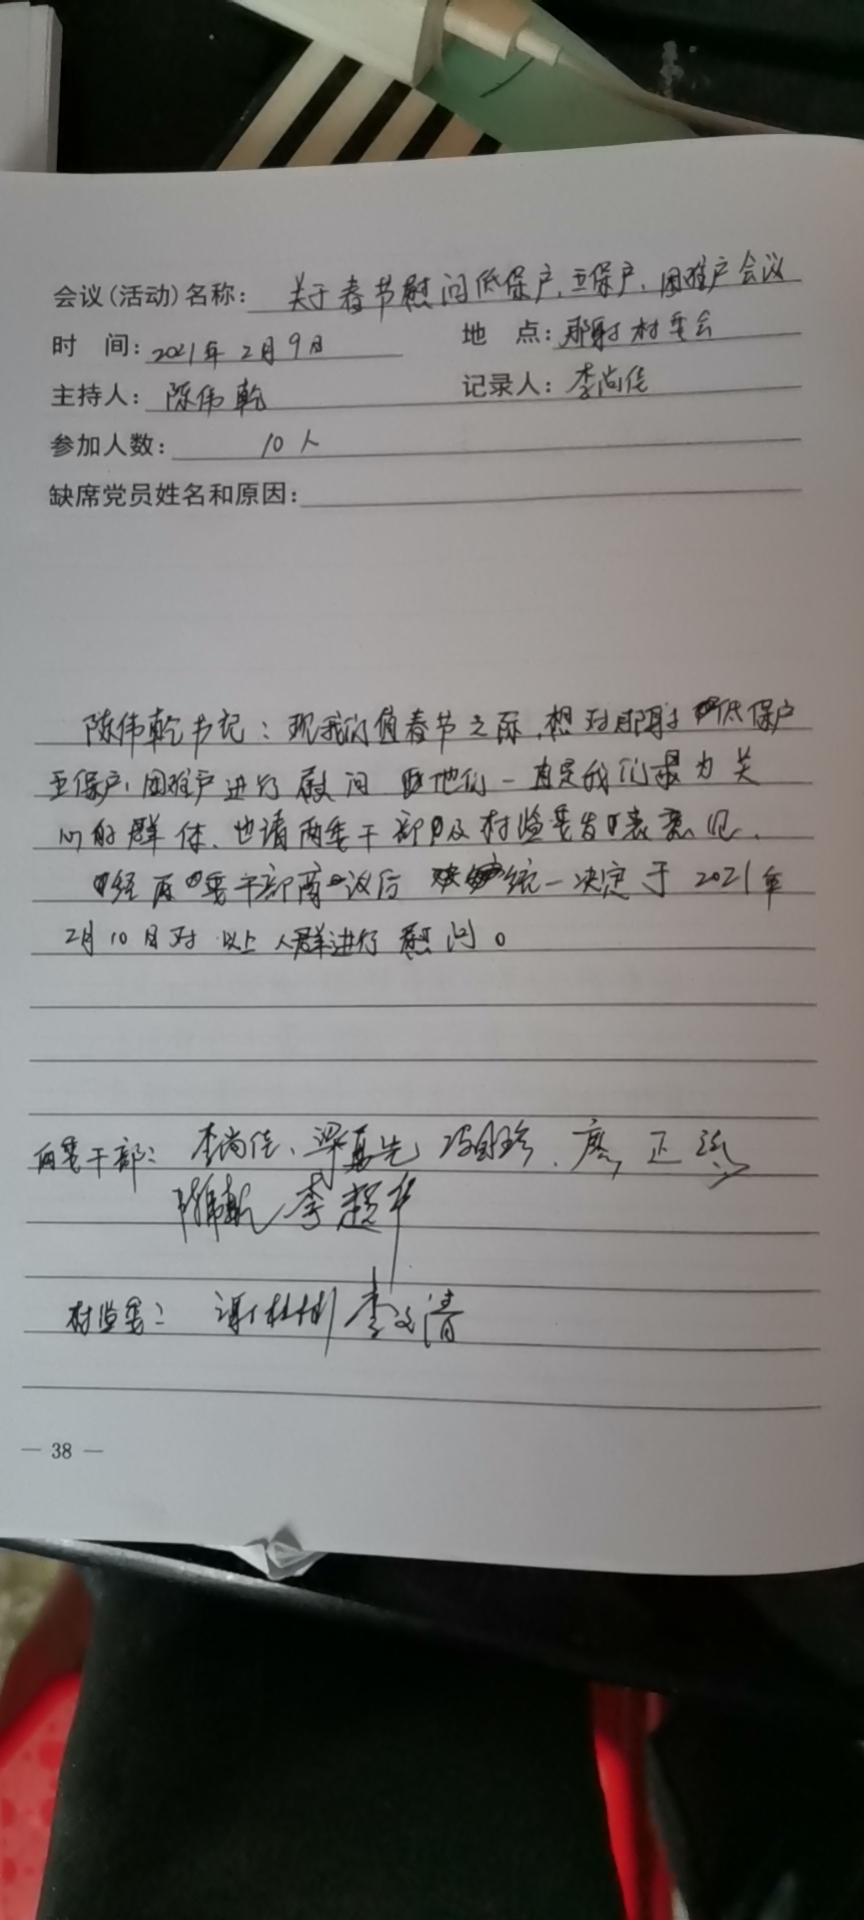 会议(活动)名称: 关于春节慰问低保户、五保户、困难户会议
时 间: 2021年2月9日 地 点: 那射村委会
主持人: 陈伟乾 记录人: 李尚佳
参加人数: 10人
缺席党员姓名和原因:
陈伟乾书记：现我们值春节之际,想对那射低保户
五保户、困难户进行慰问 他们一直是我们最为关
心的群体、也请两委干部及村监委发表意见、
经两委干部商议后 统一决定于2021年
2月10日对以上人群进行慰问。
两委干部： 李尚佳、梁 先 、廖正
陈伟乾 李超华
村监委： 谢 彬 李文清
— 38 —